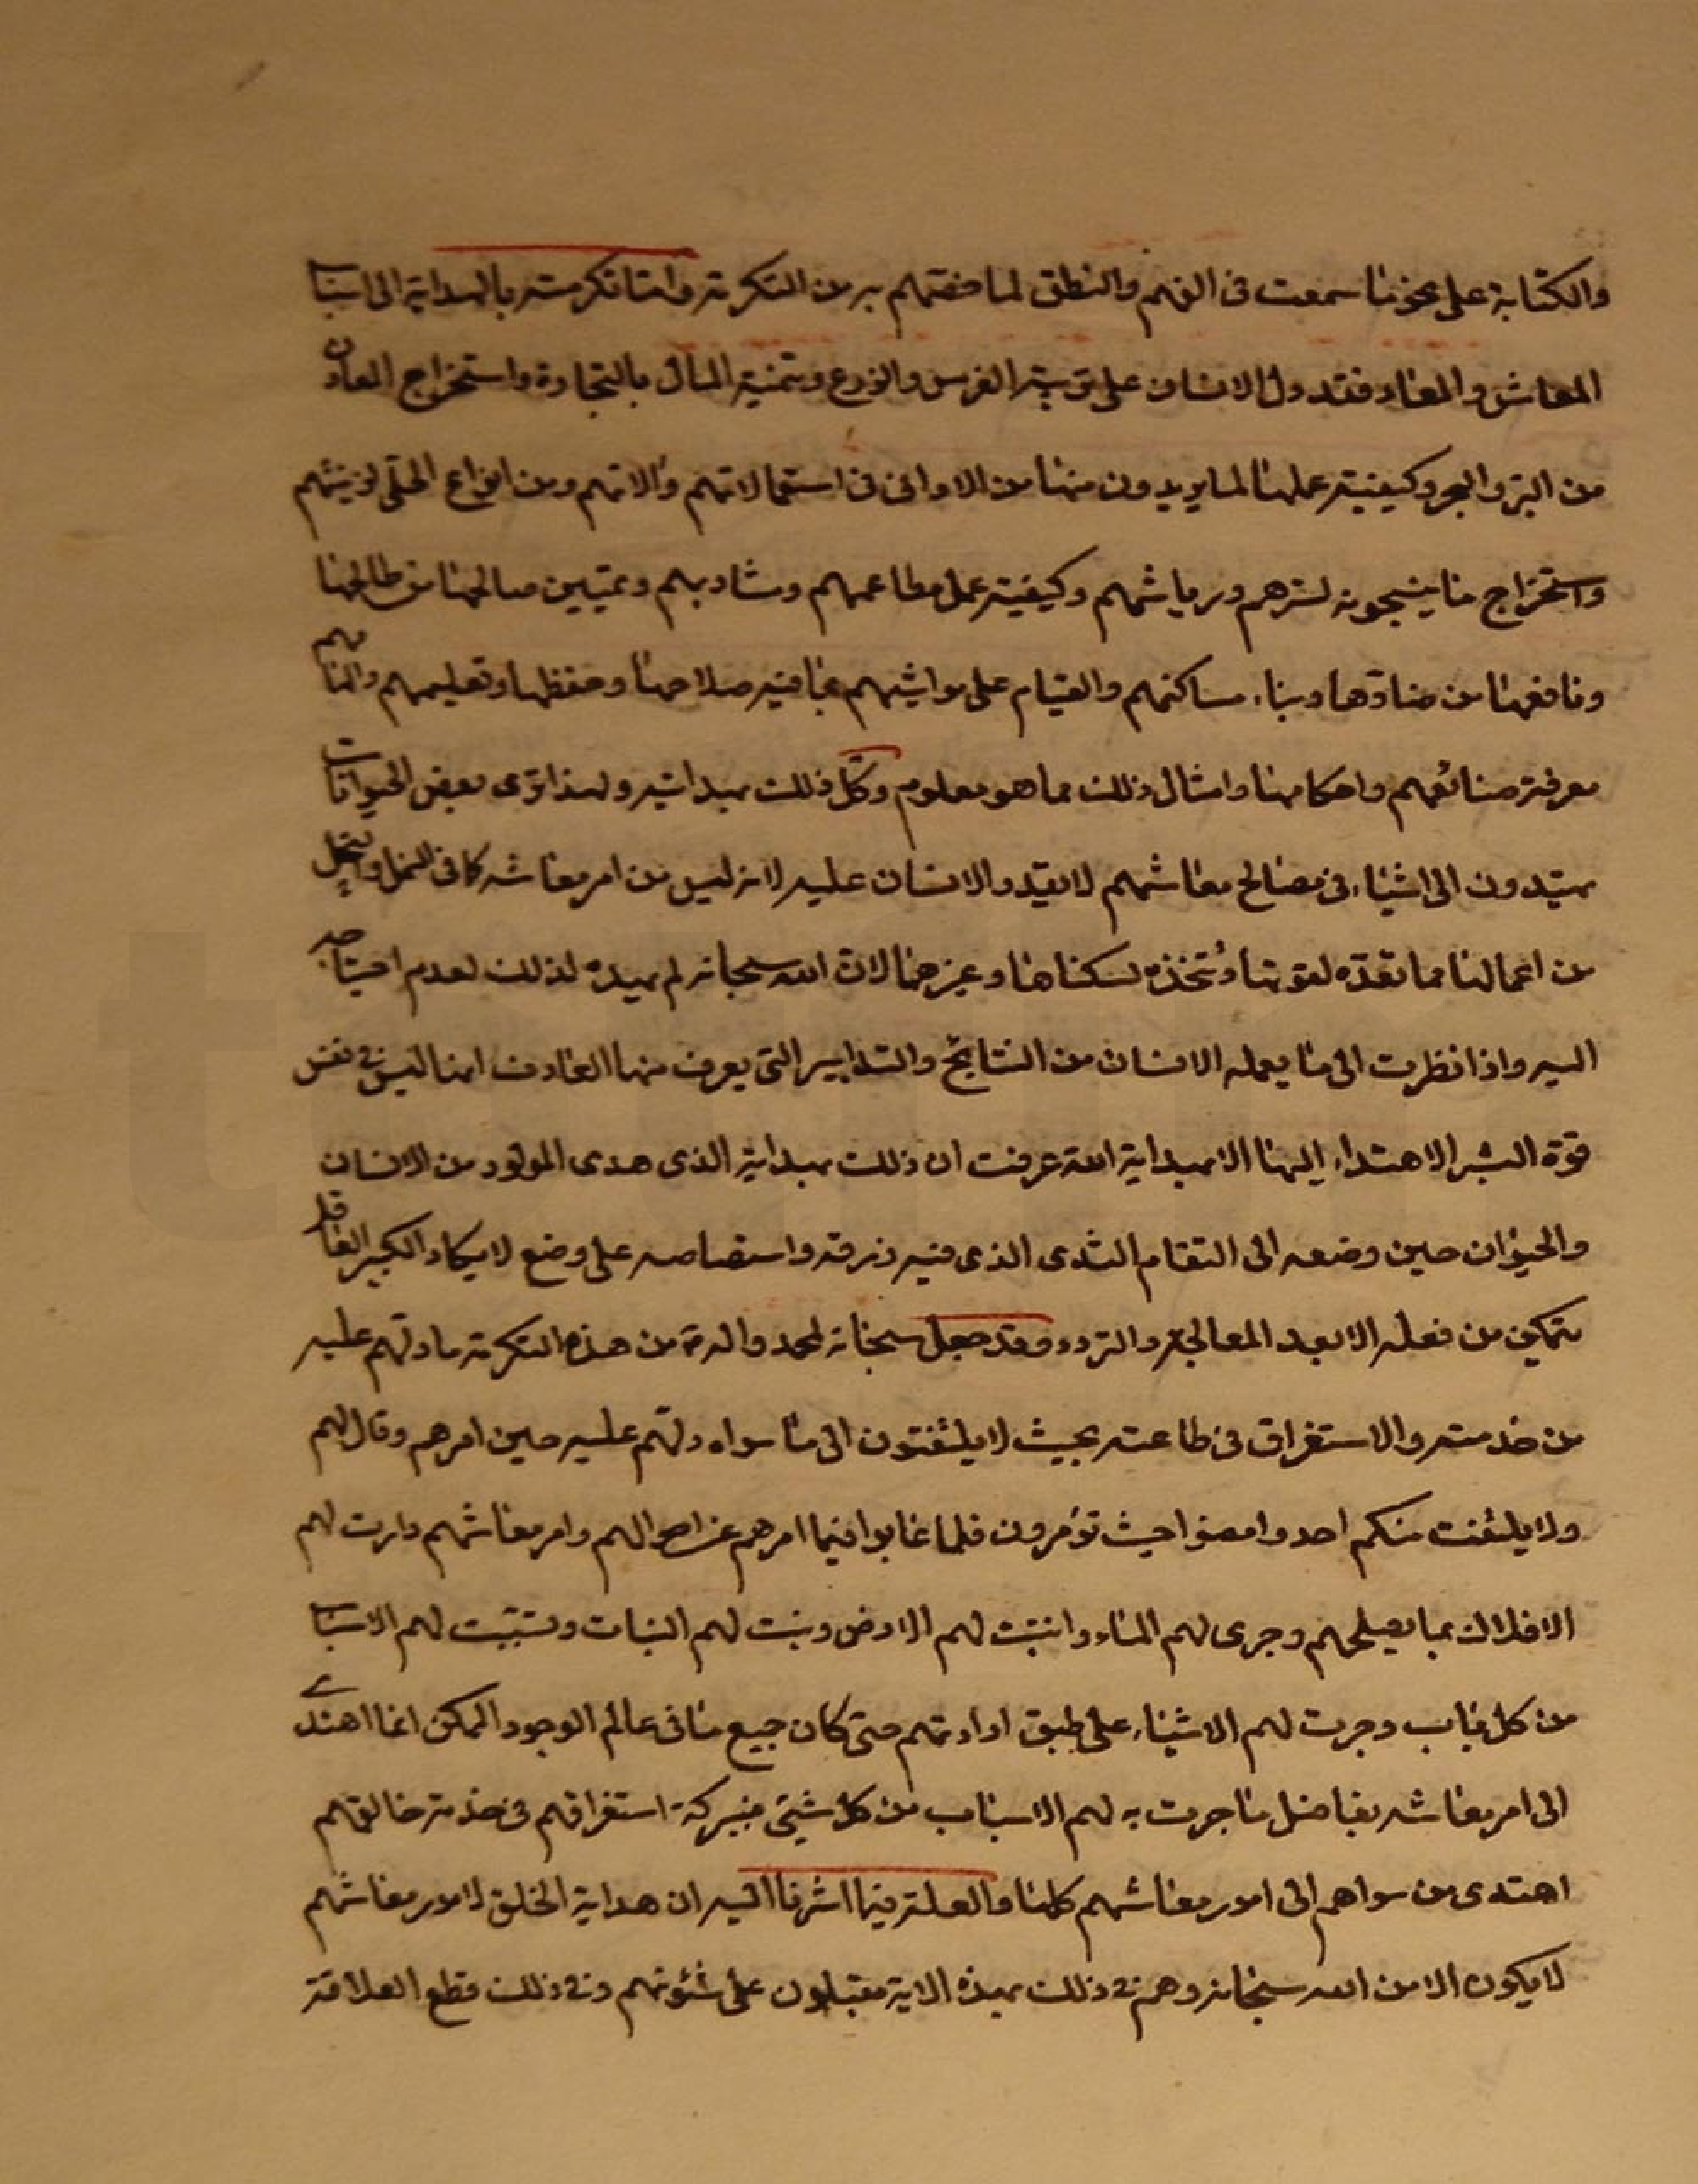 والكتابة على نحو ما سمعت فى الفهم والنطق لما خصّهم به من التكرمة وامّا تكرمته بالهداية الى اسباب
المعاش والمعاد فقد دلّ الانسان على تربية الغرس والزرع وتنمية المال بالتجارة واستخراج المعادن
من البرّ والبحر وكيفية عملها لما يريدون منها من الاوانى فى استعمالاتهم والاتهم ومن انواع الحلى لزينتهم
واستخراج ما ينسجونه لسترهم ورياشهم وكيفية عمل مطاعمهم ومشاربهم وتمييز صالحها من طالحها
ونافعها من ضارّها وبناء مساكنهم والقيام على مواشيهم بما فيه صلاحها وحفظها وتعليمهم والهامهم
معرفة صنائعهم واحكامها وامثال ذلك مما هو معلوم وكلّ ذلك بهدايته ولهذا ترى بعض الحيوانات
يهتدون الى اشياء فى مصالح معاشهم لا يقدر الانسان عليه لانه ليس من امر معاشه كما فى النمل والنحل
من اعمالها مما تعدّه لقوتها وتتخذه لسكناها وغيرهما لانّ الله سبحانه لم يهده لذلك لعدم احتياجه
اليه واذا نظرت الى ما يعمله الانسان من النتايج والتدابير التى يعرف منها العارف انها ليس فى نفس
قوّة البشر الاهتداء اليها الا بهداية الله عرفت ان ذلك بهداية الذى هدى المولود من الانسان
والحيوان حين وضعه الى التقام الثدى الذى فيه رزقه وامتصاصه على وضع لا يكاد الكبير العاقل
يتمكن من فعله الا بعد المعالجة والتردد وقد جعل سبحانه لمحمد واله من هذه التكرمة ما دلّهم عليه
من خدمته والاستغراق فى طاعته بحيث لا يلتفتون الى ما سواه دلّهم عليه حين امرهم وقال لهم
ولا يلتفت منكم احد وامضوا حيث تؤمرون فلما غابوا فيما امرهم عن احوالهم وامر معاشهم دارت لهم
الافلاك بما يصلحهم وجرى لهم الماء وانبتت لهم الارض ونبت لهم النبات وتسبّبت لهم الاسباب
من كل باب وجرت لهم الاشياء على طبق ارادتهم حتى كان جميع ما فى عالم الوجود الممكن انما اهتدى
الى امر معاشه بفاضل ما جرت به لهم الاسباب من كل شيئ فببركة استغراقهم فى خدمة خالقهم
اهتدى من سواهم الى امور معاشهم كلها والعلة فيما اشرنا اليه ان هداية الخلق لامور معاشهم
لا يكون الا من الله سبحانه وهم فى ذلك بهذه الاية مقبلون على شئونهم وفى ذلك قطع العلاقة